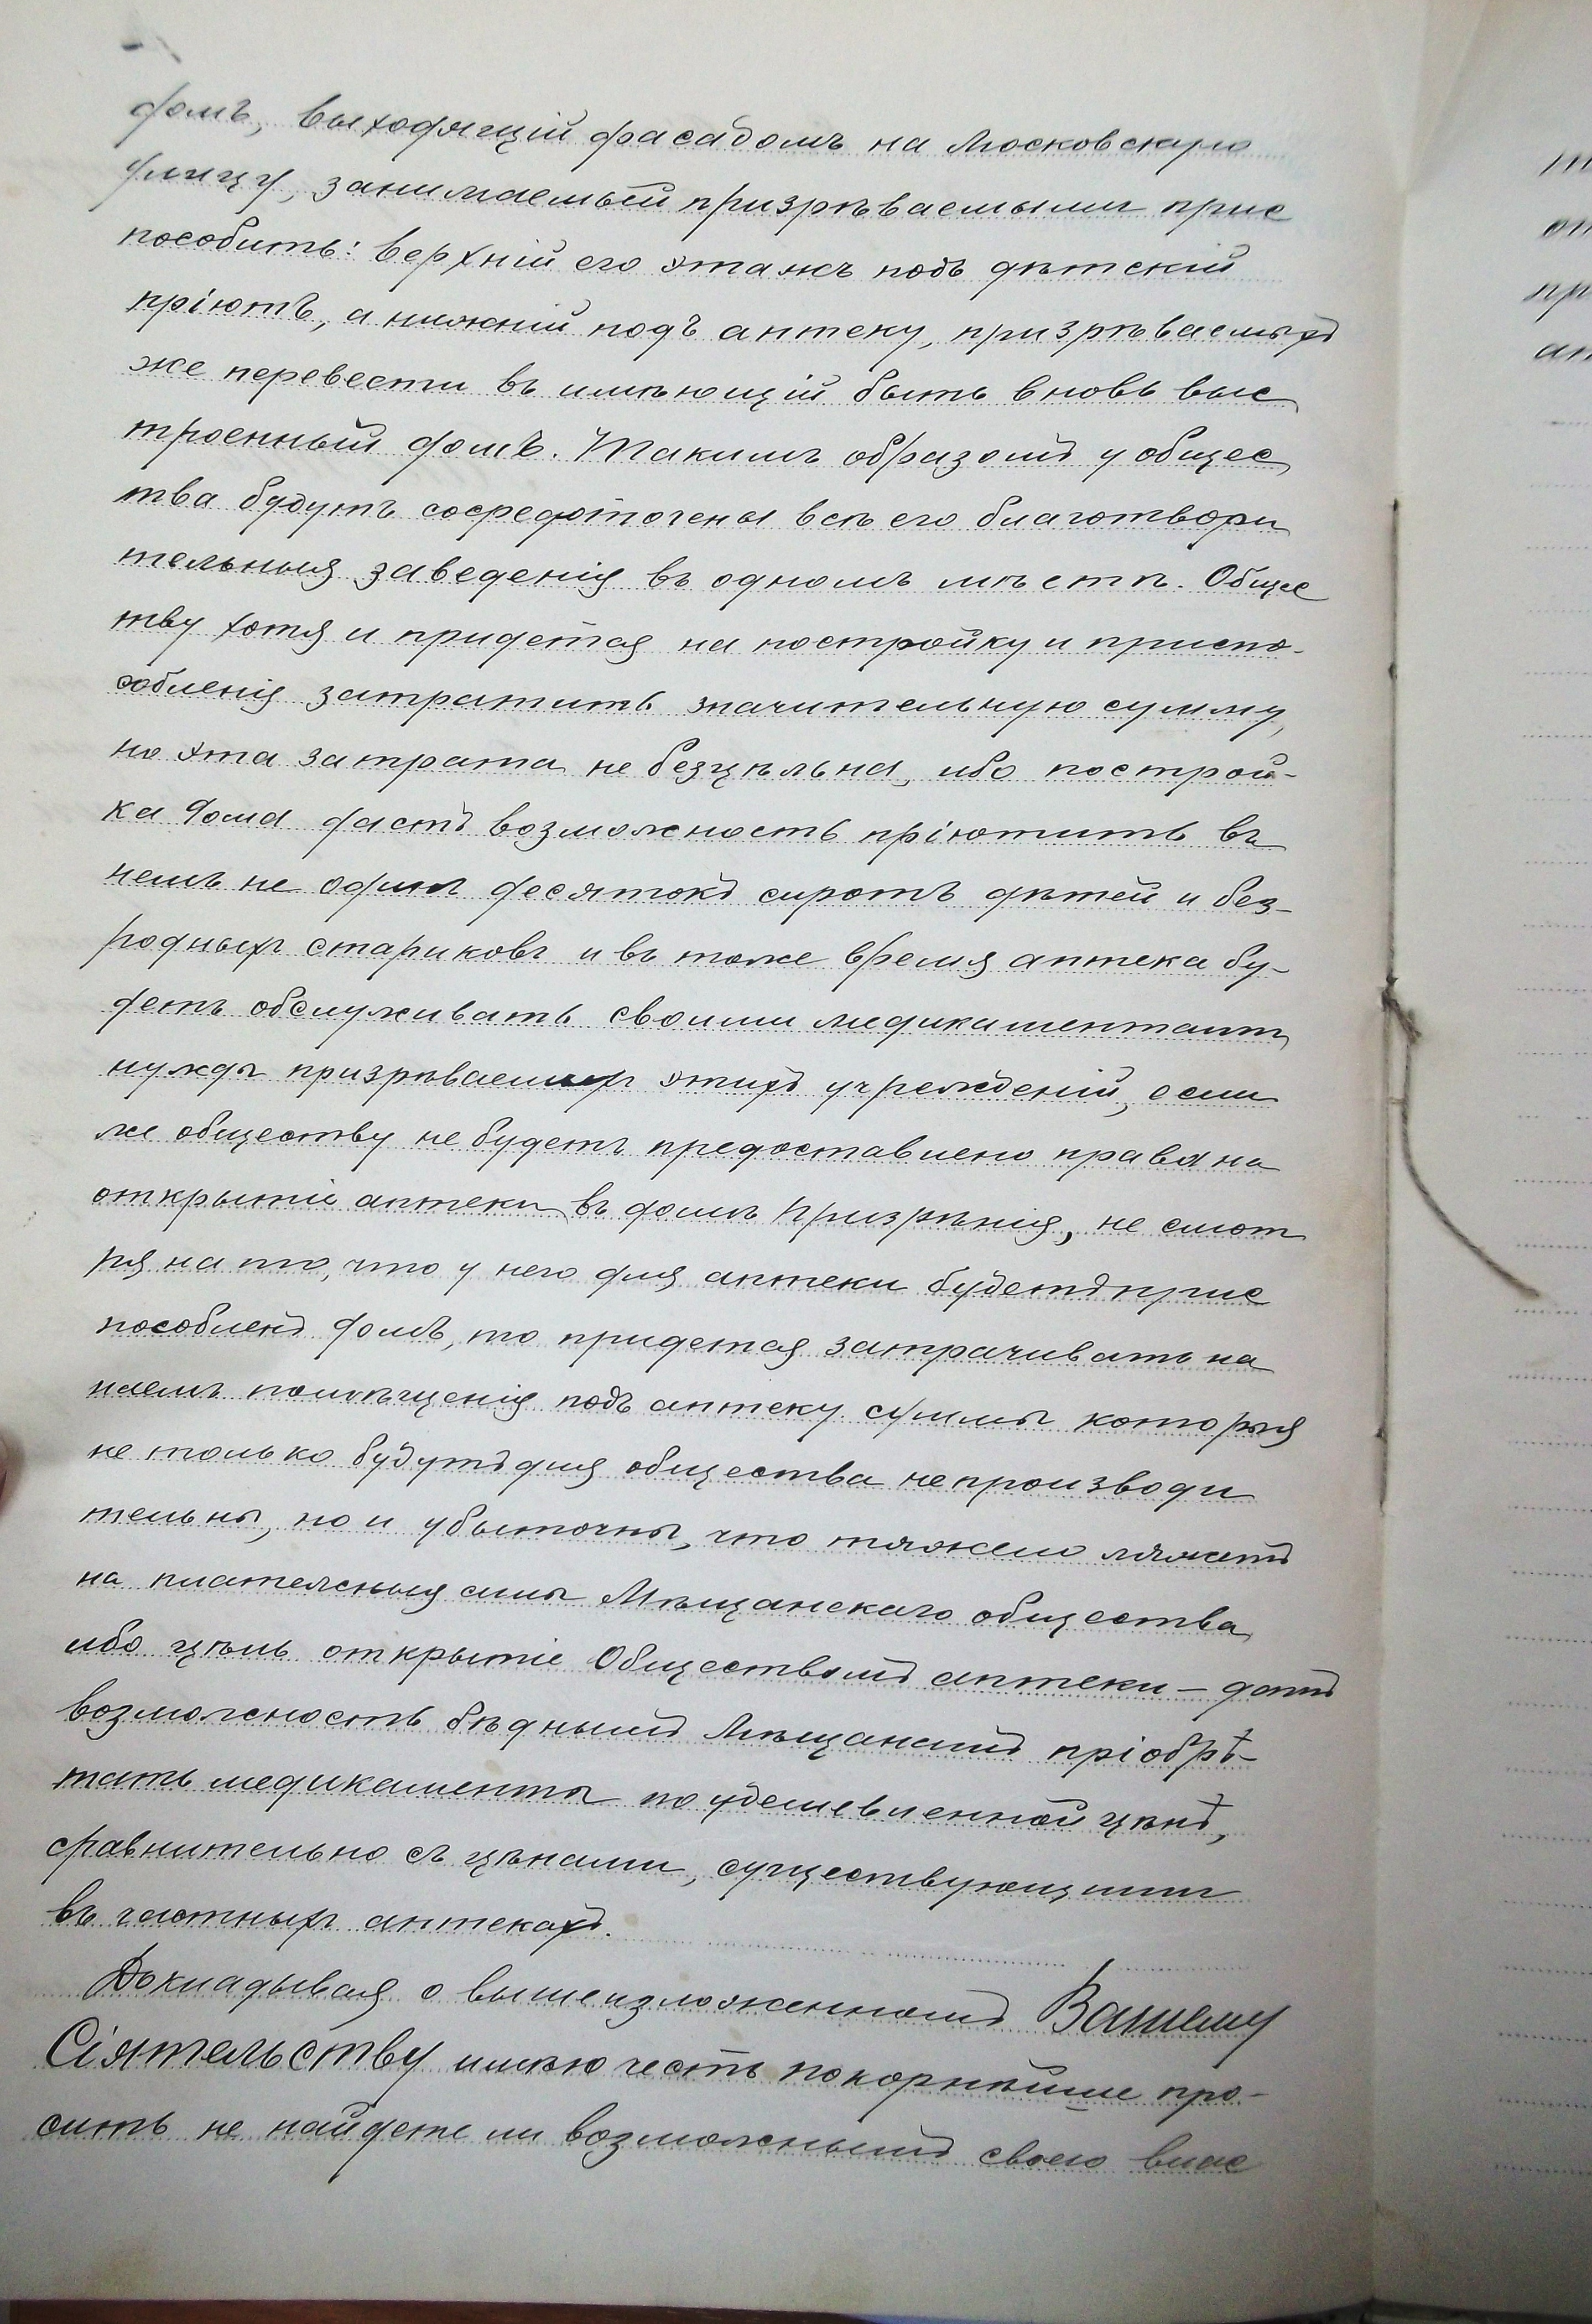 домъ, выходящій фасадомъ на Московскую
улицу, занимаемый призрѣваемыми прис
пособить: верхній его этажъ подъ дѣтскій
пріютъ, а нижній подъ аптеку, призрѣваемыхъ
же перевести въ имѣющій быть вновь выс
троенный домъ. Такимъ образомъ у общес
тва будутъ сосредоточены всѣ его благотвори
тельныя заведенія въ одномъ мѣстѣ. Общес
тву хотя и придется на постройку и приспо-
собленія затратить значительную сумму,
но эта затрата не безцѣльна, ибо построй-
ка дома дастъ возможность пріютить въ
немъ не одинъ десятокъ сиротъ дѣтей и без-
родныхъ стариковъ и въ тоже время аптека бу-
детъ обслуживать своими медикаментами
нужды призрѣваемыхъ этихъ учрежденій, если
же обществу не будетъ предоставлено права на
открытіе аптеки въ домѣ Призрѣнія, не смот
ря на то, что у него для аптеки будетъ прис
пособленъ домъ, то придется затрачивать на
наемъ помѣщенія подъ аптеку суммы которыя
не только будутъ для общества непроизводи
тельны, но и убыточны, что тяжело ляжетъ
на платежныя силы Мѣщанскаго общества,
ибо цѣль открытіе Обществомъ аптеки – дать
возможность бѣднымъ Мѣщанамъ пріобрѣ-
тать медикаменты по удешевленной цѣнѣ,
сравнительно съ цѣнами, существующими
въ частныхъ аптекахъ.
Докладывая о вышеизложенномъ Вашему
Сіятельству имѣю честь покорнѣйше про-
сить не найдете ли возможнымъ своею влас
т
оп
пр
ап